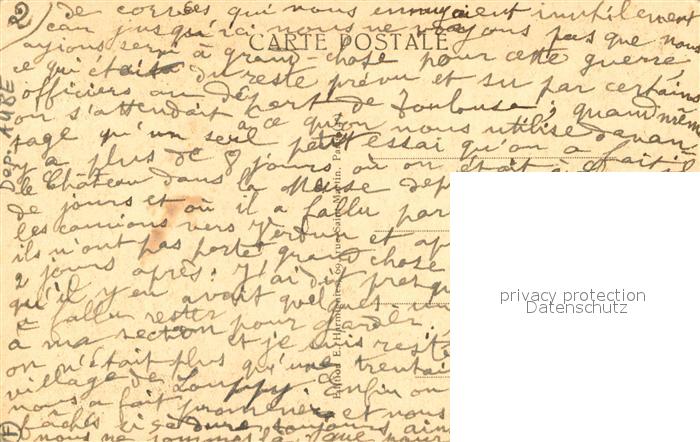 2) de corvées qui nous ennuyaient inutilement
car jusqu'ici nous ne voyons pas que nous
CARTE POSTALE
ayions servi à grand-chose pour cette guerre,
ce qui était du reste prévu et su par certains
officiers au dépert de Toulouse; quand même
on s'attendait à ce qu'on nous utilise davan
tage qu'un seul petit essai qu'on a fait il
y a plus de 8 jours où on était à
le Château dans la Meuse dep
de jours et où il a fallu par
les camions vers Verdun et ap
ils n'ont pas porté grand chose
2 jours après; j'ai dit presq
qu'il y en avait quelques un
a fallu rester
à ma section pour garder
et je suis resté
on n'était plus qu'une trentai
village de Louppy enfin on
nous a fait promener et nous
fâchés si ça dure toujours ain
nous ne sommes là que pour
Dep. AUBE
69, rue Saint-Martin, Paris
privacy protection
Datenschutz